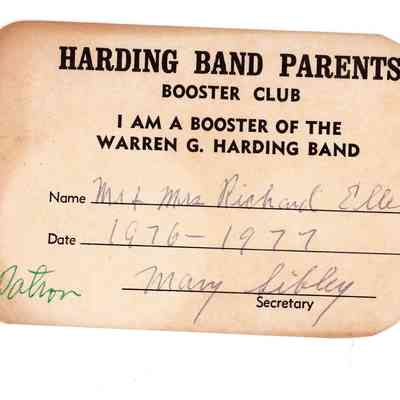 HARDING BAND PARENTS
BOOSTER CLUB
I AM A BOOSTER OF THE
WARREN G. HARDING BAND
Name Mr & Mrs Richard Elle
Date 1976-1977
Patron
Mary Sibley
Secretary